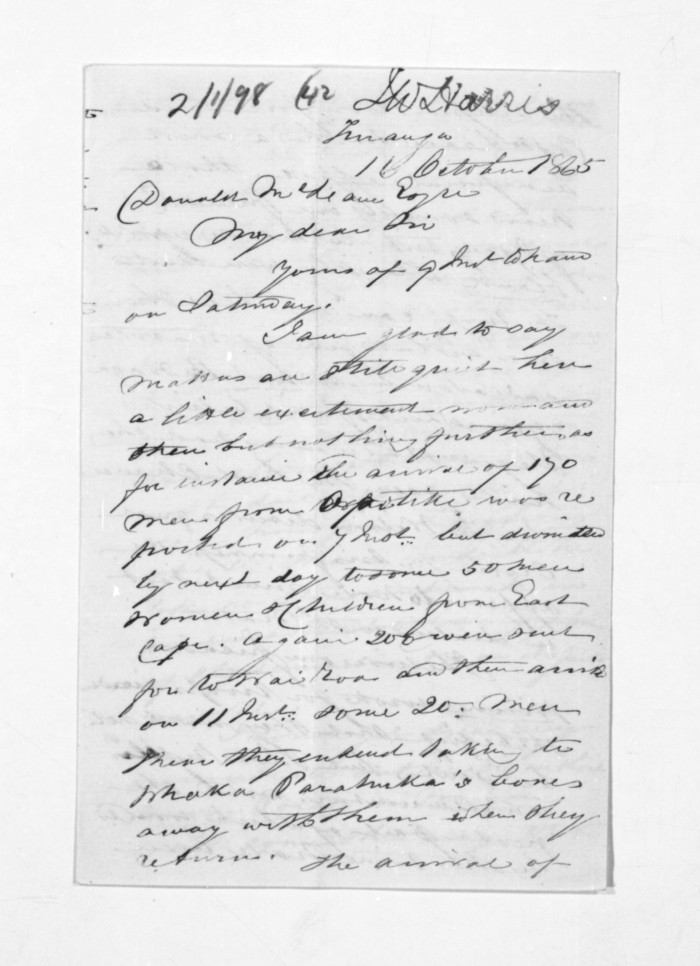 2/1/98 (42 JW Harris
Turanga
16 October 1865
Donald McLean Esqre
My dear Sir
Yours of 9 Inst to hand
on Saturday.
I am glad to say
matters are still quiet here
a little excitement now and
then but nothing further, as
for instance the arrival of 170
men from Opotiki was re
ported on 7 Inst. but dwindled
by next day to some 50 men
women & Children from East
Cape. Again 200 were sent
for to Wairoa and there arrived
on 11 Inst. some 20. Men
these they intend taking
Whaka Paratuka's bones
away with them when they
return. The arrival of